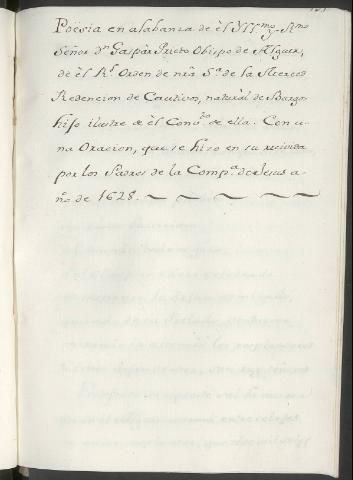 Poësia en alabanza de èl Yllmo. y Rmo
Señor Dn. Gaspàr Prieto Obispo de Alguer,
de èl Rl. Orden de nrã Sa. de la Merced
Redencion de Cautivos, naturàl de Burgos
hijo ilustre de èl Convto. de ella. Con u-
na Oracion, que se hizo en su recivida
por los Padres de la Compa. de Jesus a-
ño. de 1628.